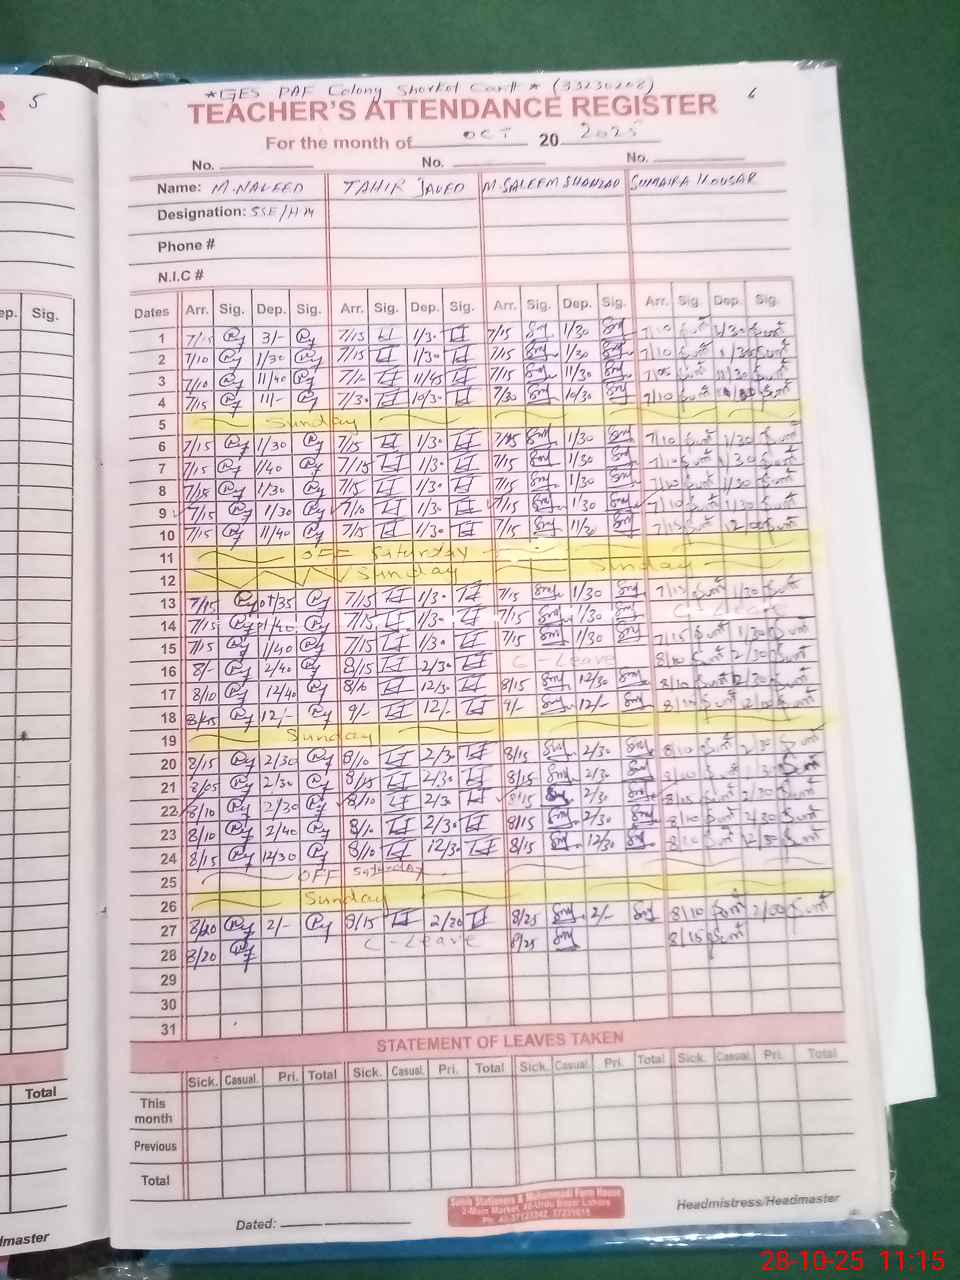 5
6
*GES PAF Colony Shorkot Cantt * (33230208)
TEACHER'S ATTENDANCE REGISTER
For the month of OCT 20 2025
No. No. No.
Name: M.NAVEED TAHIR JAVED M.SALEEM SHAHZAD SUMAIRA KOUSAR
Designation: SSE/HM
Phone #
N.I.C #
ep. Sig.
Dates Arr. Sig. Dep. Sig. Arr. Sig. Dep. Sig. Arr. Sig. Dep. Sig. Arr. Sig. Dep. Sig.
1 7/15 3/- 7/15 1/30 7/15 1/30 7/10 1/30
2 7/10 1/30 7/15 1/30 7/15 1/30 7/10
3 7/10 11/40 11/45 7/15 11/30 7/05 11/30
4 7/15 11/- 7/30 10/30 7/30 10/30 7/10
5 Sunday
6 7/15 1/30 7/15 1/30 7/15 1/30 7/10 1/30
7 7/15 1/40 7/15 1/30 7/15 1/30 7/10 1/30
8 7/15 1/30 7/15 1/30 7/15 1/30 7/10 1/30
9 7/15 1/30 7/10 1/30 7/15 1/30 7/10 1/30
10 7/15 11/40 7/15 1/30 7/15 7/15 12/00
11 OFF Saturday
12 Sunday Sunday
13 7/15 01/35 7/15 1/30 7/15 1/30 7/15 1/30
14 7/15 01/40 7/15 1/30 7/15 1/30 C-Leave
15 7/15 1/40 7/15 1/30 7/15 1/30 7/15 1/30
16 8/- 2/40 8/15 2/30 C-Leave 8/10 2/30
17 8/10 12/40 8/10 12/30 8/15 12/30 8/10 12/30
18 12/- 9/- 12/- 9/- 12/- 8/10 12/00
19 Sunday
20 8/15 2/30 8/10 2/30 8/15 2/30 8/10 2/30
21 8/05 2/30 8/15 2/30 8/15 2/30 8/10
22 8/10 2/30 8/10 2/30 8/15 2/30 8/15 2/30
23 8/10 2/40 8/10 2/30 8/15 2/30 8/10 2/30
24 8/15 12/30 8/10 12/30 8/15 12/30 8/10
25 OFF Saturday
26 Sunday
27 8/20 2/- 8/15 2/20 8/25 2/- 8/10 2/00
28 8/20 C-Leave 8/25 8/15
29
30
31
STATEMENT OF LEAVES TAKEN
Sick. Casual. Pri. Total Sick. Casual. Pri. Total Sick. Casual. Pri. Total Sick. Casual. Pri. Total
Total
This month
Previous
Total
Sabih Stationers & Muhammadi Form House
2-Main Market, 40-Urdu Bazar Lahore
Dated:
Headmistress/Headmaster
dmaster
28-10-25 11:15